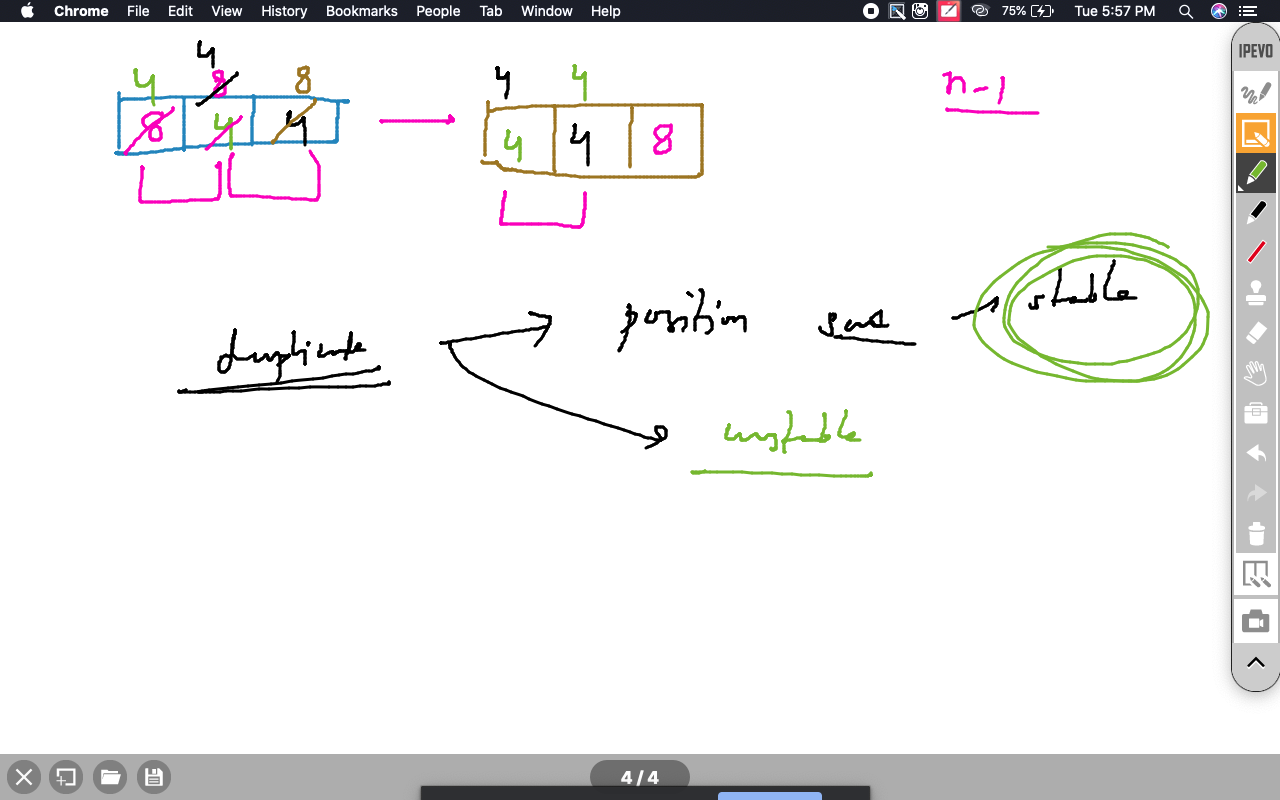 Chrome File Edit View History Bookmarks People Tab Window Help 75% Tue 5:57 PM
IPEVO
4
4 8 8
8 4 4
4 4
4 4 8
n-1
duplicate
position
stable
unstable
4 / 4